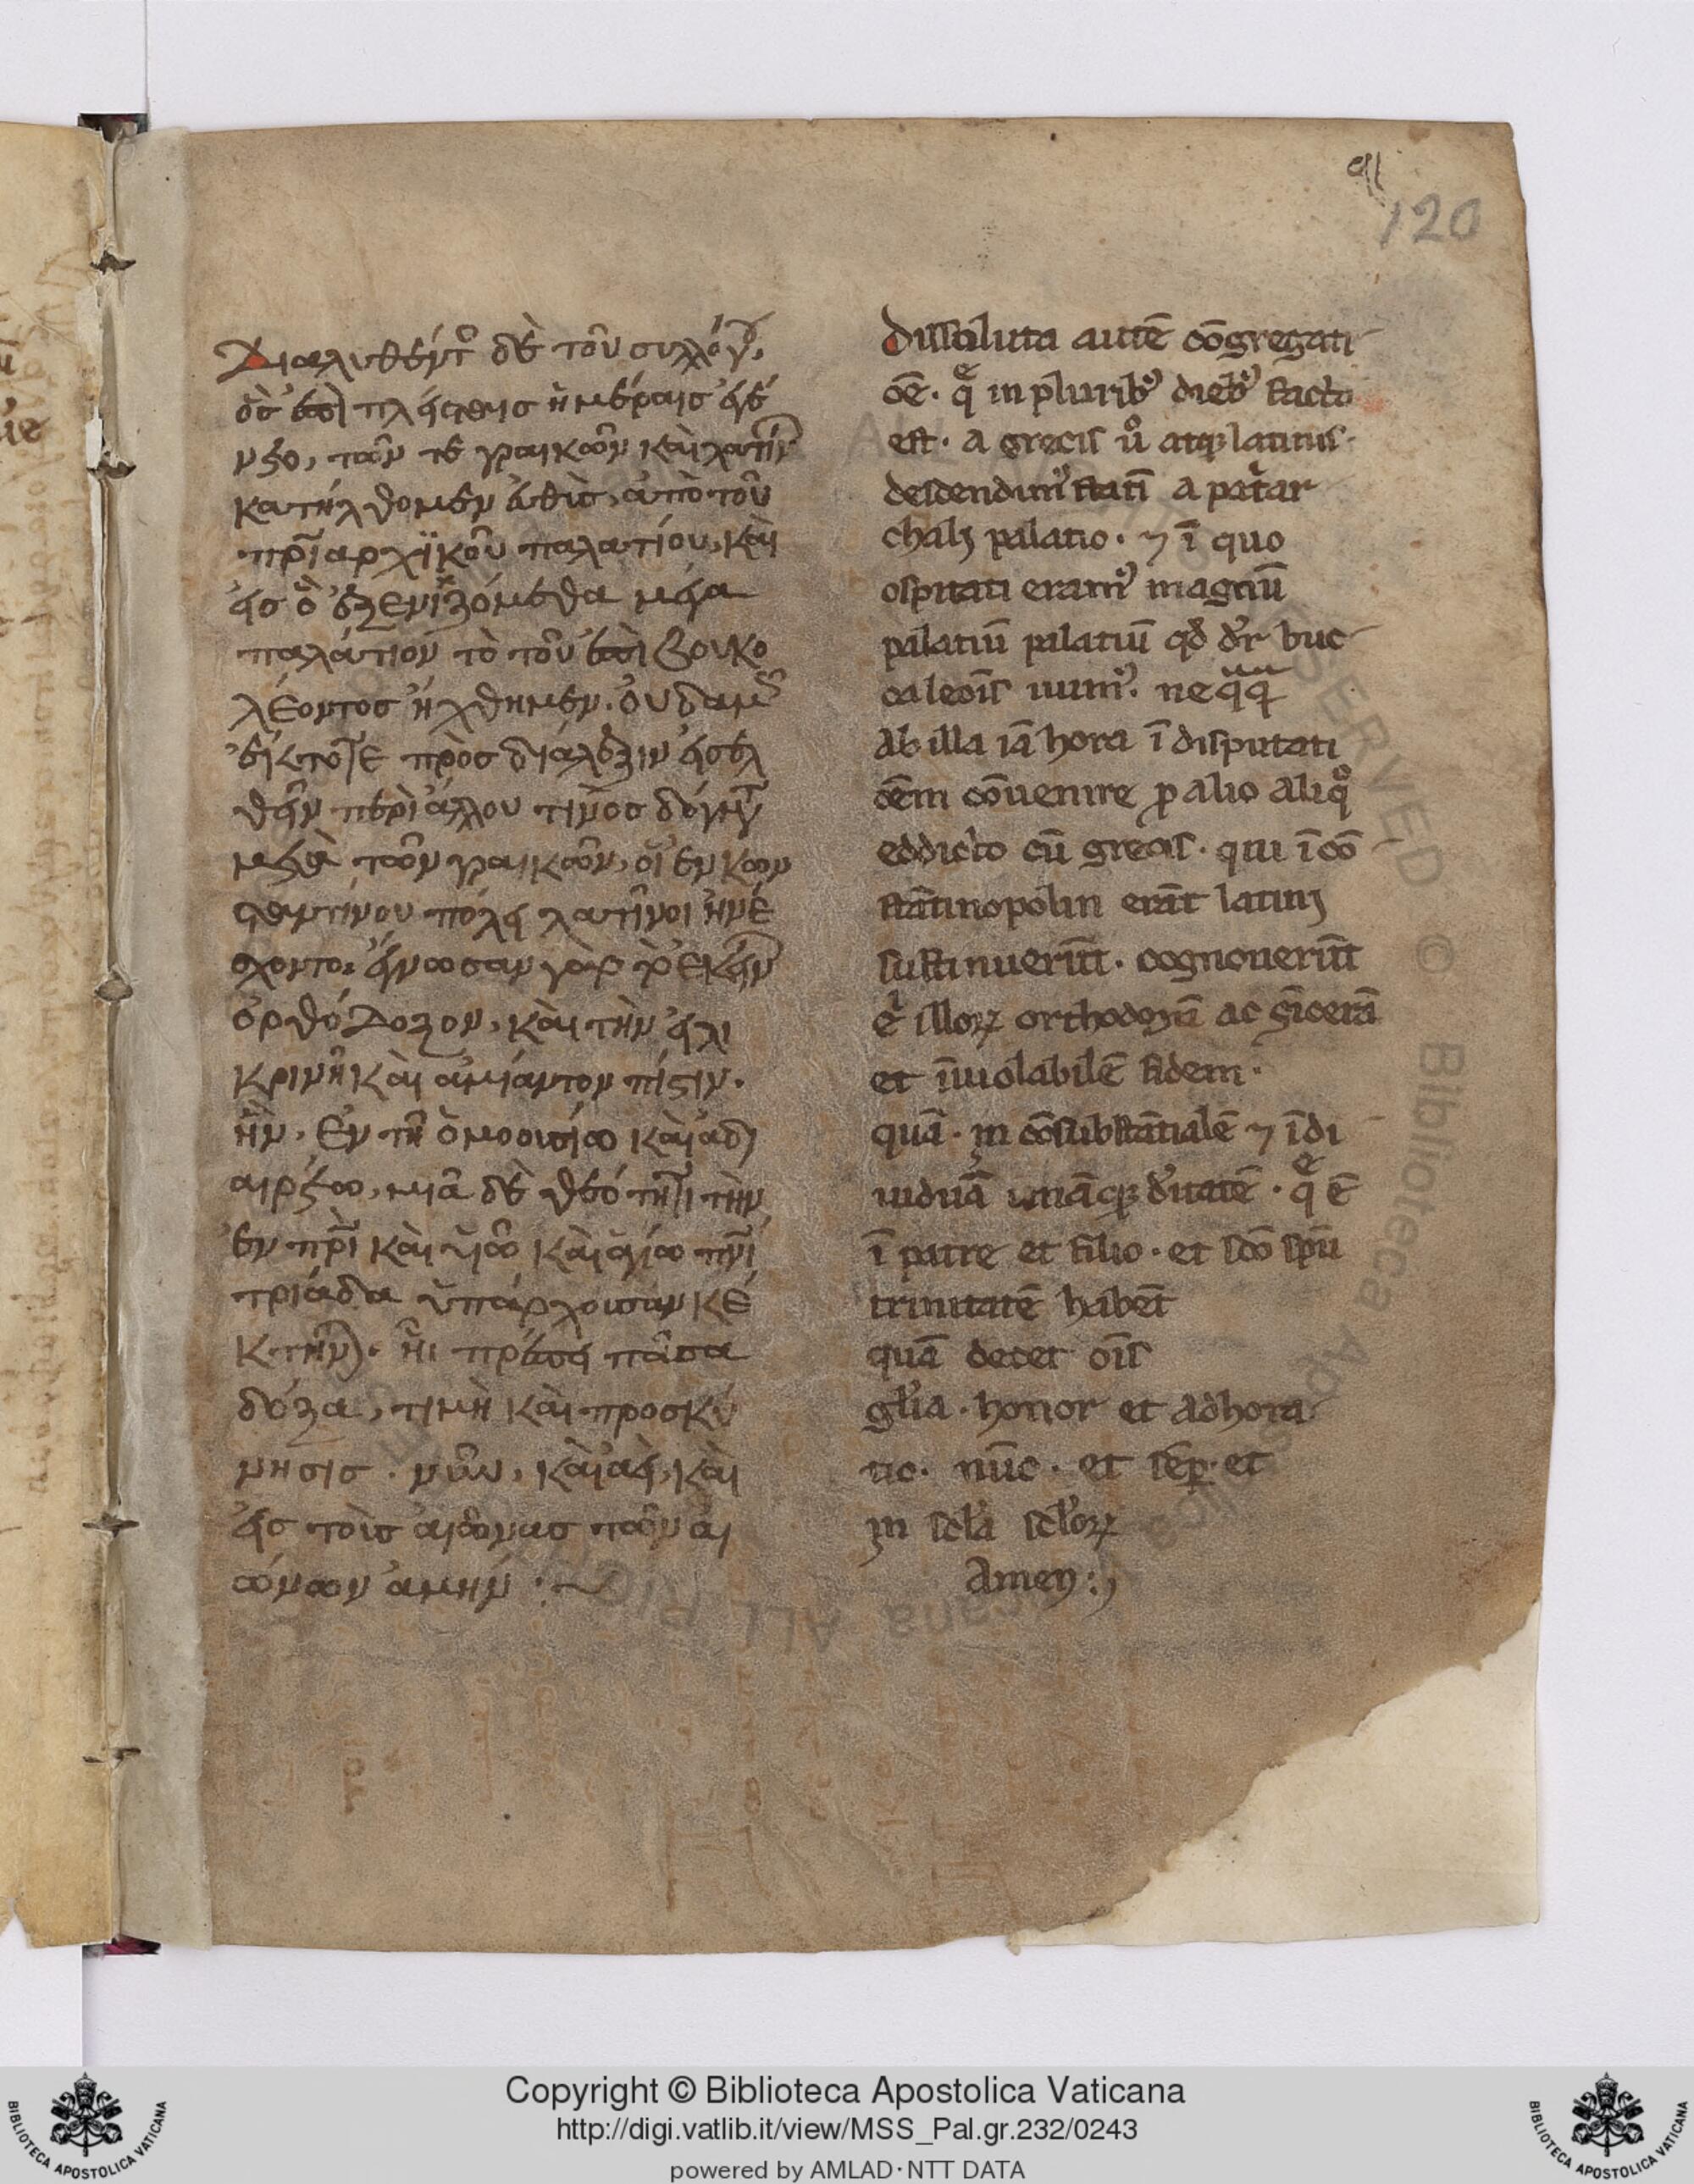 91
120
Διαλυθέντο δὲ τοῦ συλλόγου,
ὃς ἐπὶ πλείσταις ἡμέραις ἐγέ
νετο, τῶν τε γραικῶν καὶ λατίνων
κατήλθομεν εὐθὺς, ἀπὸ τοῦ
πριαρχϊκοῦ παλατίου, καὶ
εἰς ὃ ἐξενιζόμεθα μέγα
παλάτιον τὸ τοῦ ἐπὶ βουκο
λέοντος ἤχθημεν. οὐδαμῶς
πρὸς διάλεξιν εἰσελ
θεῖν περὶ ἄλλου τινὸς δόγματος
μετὰ τῶν γραικῶν, οἱ ἐν κων
σταντίνου πόλει λατῖνοι ἠνέ
σχοντο. ἔγνωσαν γὰρ ἐκείνων
ὀρθόδοξον, καὶ τὴν εἰλι
κρινῆ καὶ ἀμίαντον πίστιν.
ἣν, ἐν τῇ ὁμοουσίω καὶ ἀδι
αιρέτω, μιᾶ δὲ θεότητι τὴν
ἐν πρὶ καὶ υἱῶ καὶ ἁγίω πνι
τριάδα ὑπάρχουσαν κέ
κτηνται. ἧι πρέπει πᾶσα
δόξα, τιμὴ καὶ προσκύ
νησις. νῦν, καὶ ἀεὶ, καὶ
εἰς τοὺς αἰῶνας τῶν αἰ
ώνων ἀμήν :~
Dissoluta autē cōgregati
oē. q̄ in plurib⁹ dieb⁹ facto
est. a grecis ů atq; latinis.
descendim⁹ statī a patar
chali palatio. ⁊ ī quo
ospitati eram⁹ magnū
palatiū palatiū qđ dr buc
caleonis iuim⁹. neq̄q̄
ab illa iā hora ī disputati
oēm cōuenire p alio aliq°
eddicto cū grecis. qui ī cō
stātinopolin erāt latini
sustinuerūt. cognouerūt
e illoꝝ orthodoxā ac sīcerā
et īuiolabilē fidem.
quā. in cōsubstātialē ⁊ īdi
uiduā unāq; dītatē. q̄ ē
ī patre et filio. et scō spū
trinitatē habēt
quā decet oīs
glīa. honor et adhora
tio. nūc. et sēp. et
in scla scloꝝ
Amen:,
Copyright © Biblioteca Apostolica Vaticana
http://digi.vatlib.it/view/MSS_Pal.gr.232/0243
powered by AMLAD·NTT DATA
BIBLIOTECA APOSTOLICA VATICANA
BIBLIOTECA APOSTOLICA VATICANA